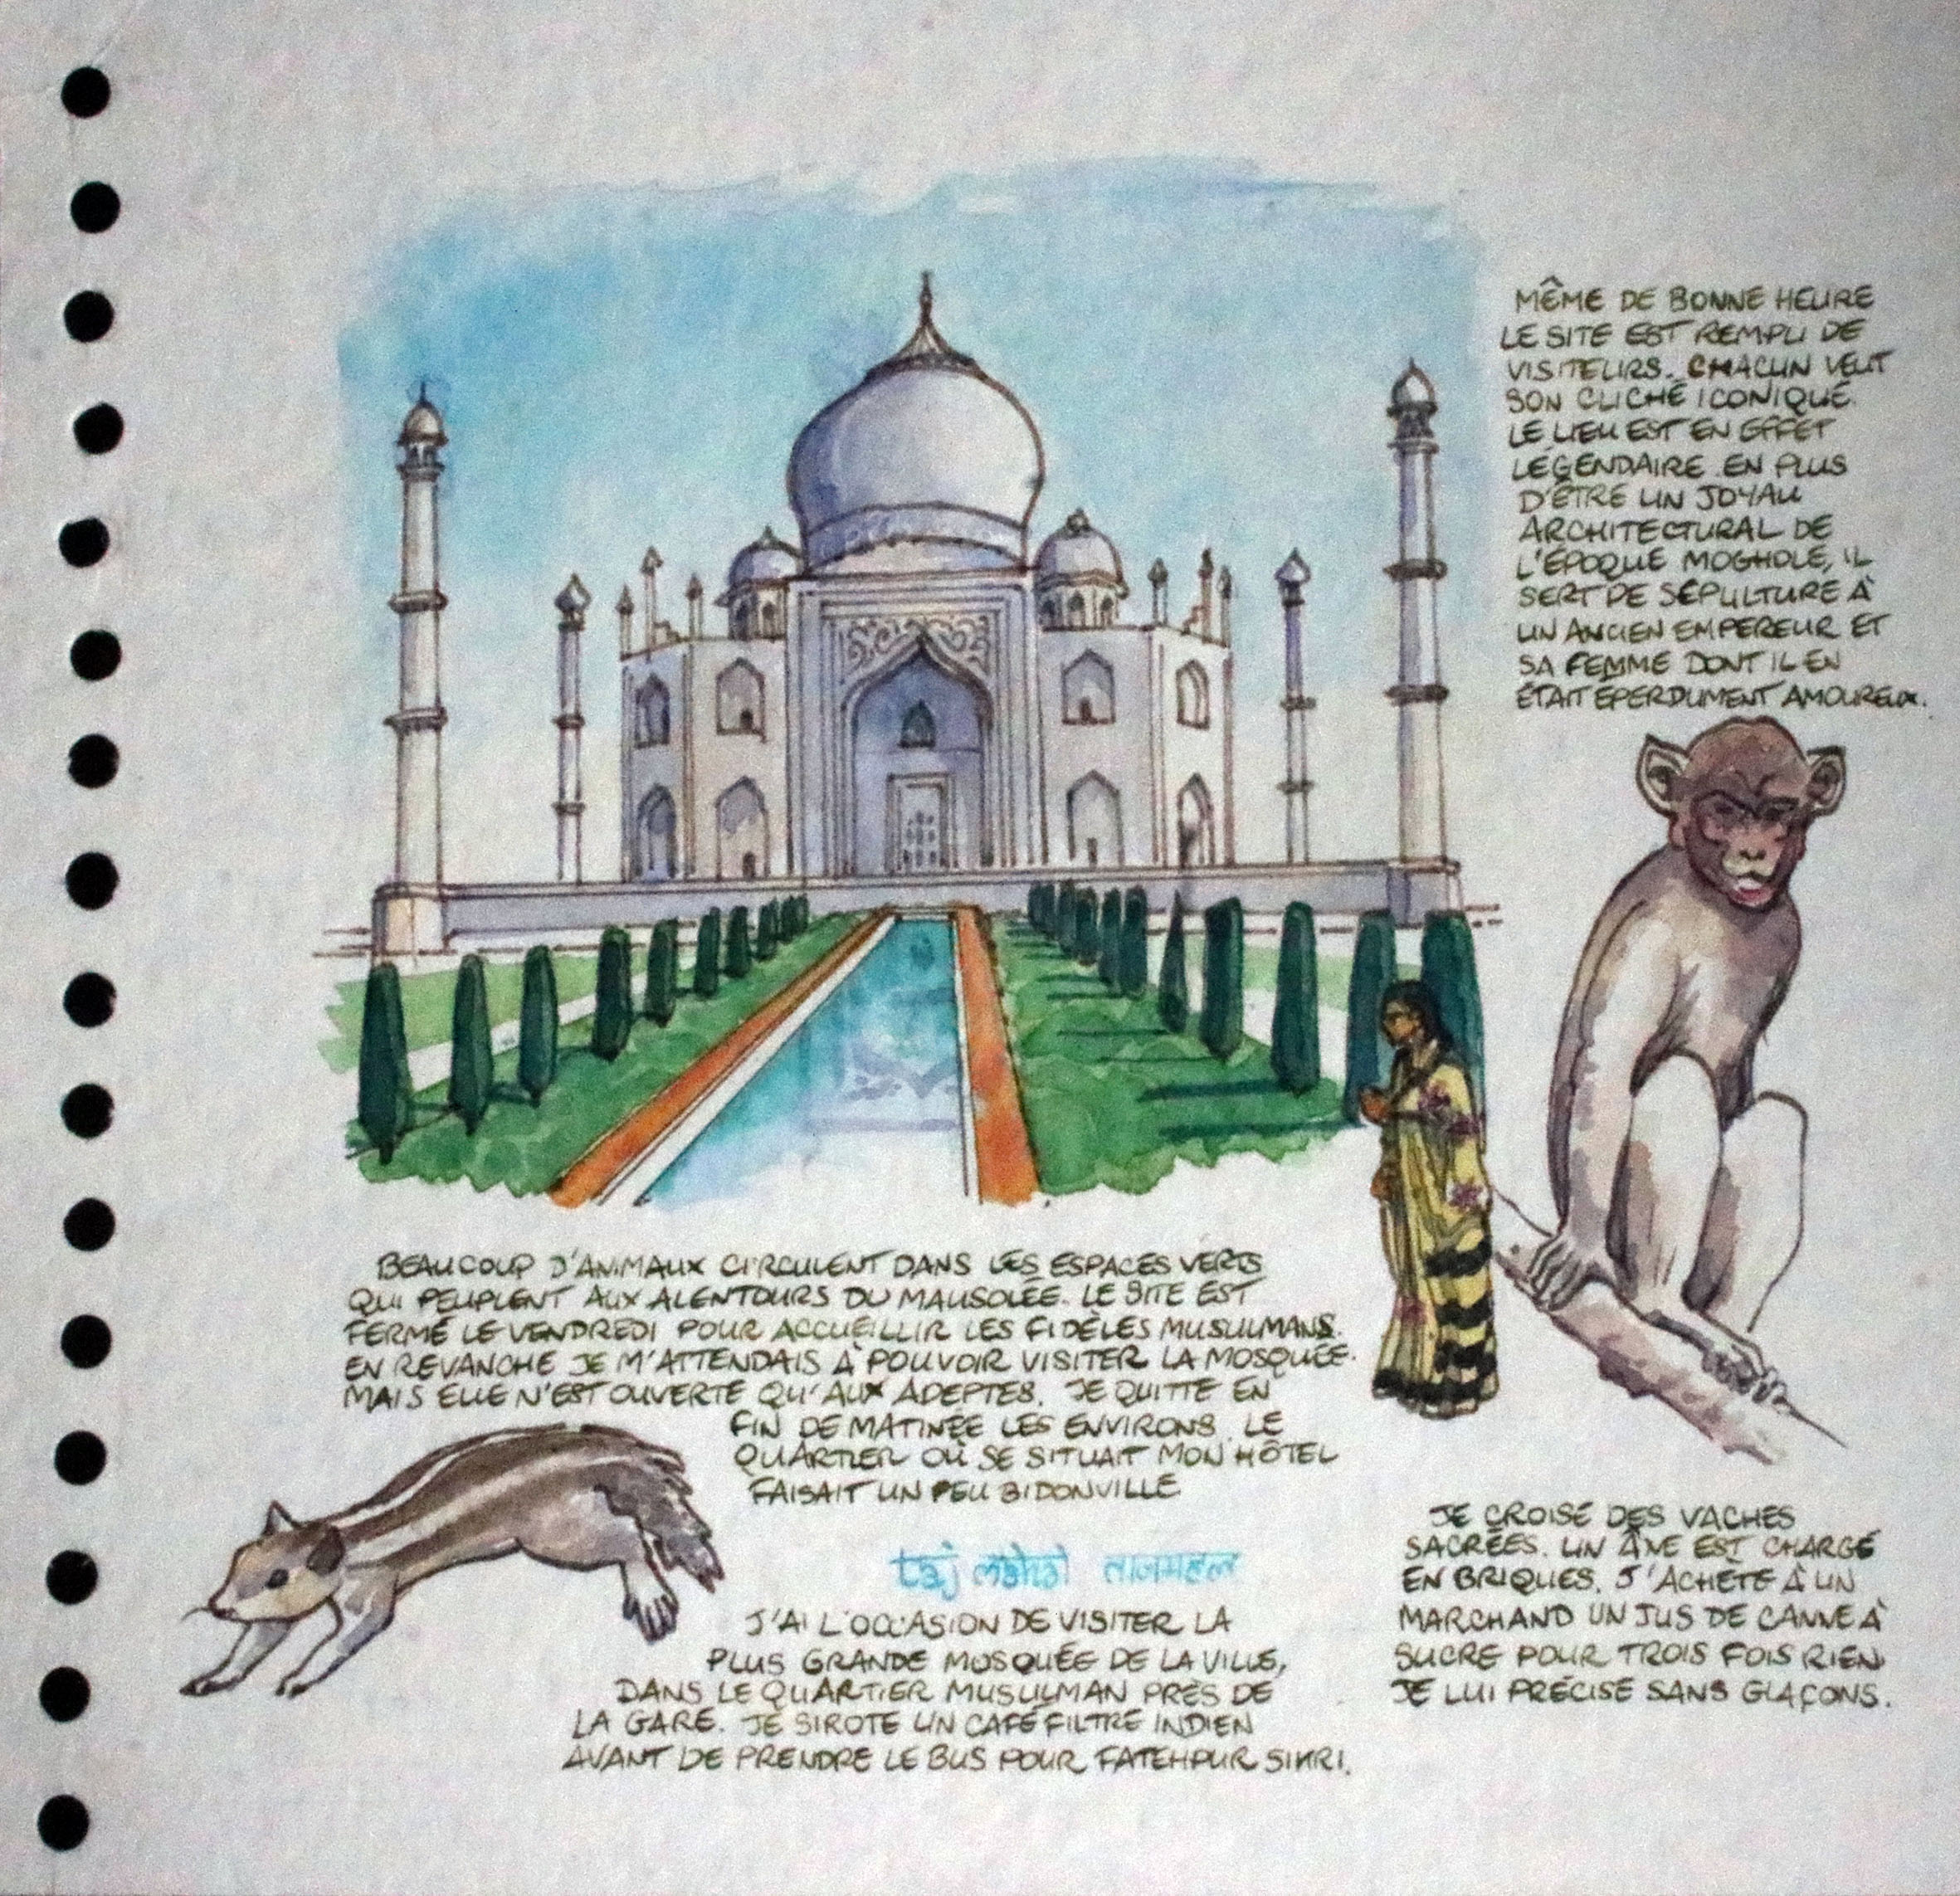 MÊME DE BONNE HEURE
LE SITE EST REMPLI DE
VISITEURS. CHACUN VEUT
SON CLICHÉ ICONIQUE.
LE LIEU EST EN EFFET
LÉGENDAIRE. EN PLUS
D'ÊTRE UN JOYAU
ARCHITECTURAL DE
L'ÉPOQUE MOGHOLE, IL
SERT DE SÉPULTURE À
UN ANCIEN EMPEREUR ET
SA FEMME DONT IL EN
ÉTAIT ÉPERDUMENT AMOUREUX.
BEAUCOUP D'ANIMAUX CIRCULENT DANS LES ESPACES VERTS
QUI PEUPLENT AUX ALENTOURS DU MAUSOLÉE. LE SITE EST
FERMÉ LE VENDREDI POUR ACCUEILLIR LES FIDÈLES MUSULMANS.
EN REVANCHE JE M'ATTENDAIS À POUVOIR VISITER LA MOSQUÉE.
MAIS ELLE N'EST OUVERTE QU'AUX ADEPTES. JE QUITTE EN
FIN DE MATINÉE LES ENVIRONS. LE
QUARTIER OÙ SE SITUAIT MON HÔTEL
FAISAIT UN PEU BIDONVILLE
taj mahal ताजमहल
J'AI L'OCCASION DE VISITER LA
PLUS GRANDE MOSQUÉE DE LA VILLE,
DANS LE QUARTIER MUSULMAN PRÈS DE
LA GARE. JE SIROTE UN CAFÉ FILTRE INDIEN
AVANT DE PRENDRE LE BUS POUR FATEHPUR SIKRI.
JE CROISE DES VACHES
SACRÉES. UN ÂNE EST CHARGÉ
EN BRIQUES. J'ACHÈTE À UN
MARCHAND UN JUS DE CANNE À
SUCRE POUR TROIS FOIS RIEN
JE LUI PRÉCISE SANS GLAÇONS.